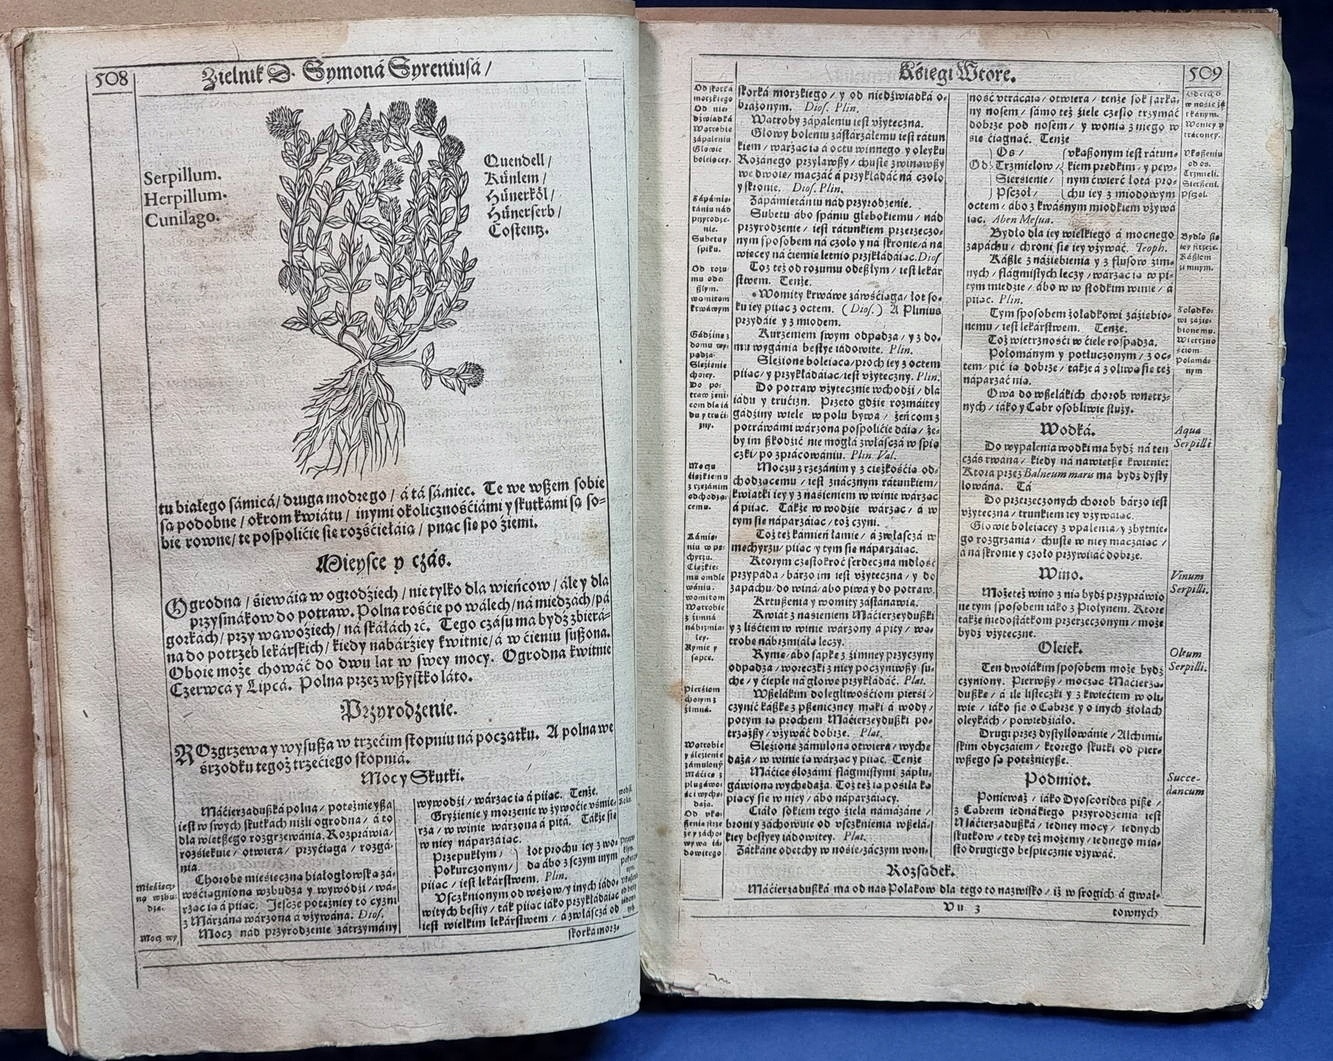 508
Zielnik D. Symoná Syreniusá /
Serpillum.
Herpillum.
Cunilago.
Quendell /
Künlem /
Hünerköl /
Hünerserb /
Costentz.
tu białego sámicá / druga modrego / á tá sámiec. Te we wszem sobie
są podobne / okrom kwiátu / inymi okolicznośćiámi y skutkámi są so-
bie rowne / te pospolićie się rozśćieláią / pnąc się po źiemi.
Mieysce y czás.
Ogrodna / śiewáią w ogrodźiech / nie tylko dla wieńcow / ále y dla
przysmákow do potraw. Polna rośćie po wálech / ná miedzách / pá
gorkách / przy wąwoźiech / ná skáłách ꝛć. Tego czásu ma bydź zbierá-
na do potrzeb lekárskich / kiedy nabárźiey kwitnie / á w ćieniu suszona.
Oboie może chowáć do dwu lat w swey mocy. Ogrodna kwitnie
Czerwcá y Lipcá. Polna przez wszystko láto.
Przyrodzenie.
ROzgrzewa y wysusza w trzećim stopniu ná początku. A polna we
śrzodku tegoż trzećiego stopniá.
Moc y Skutki.
Máćierzaduszká polna / potężnieysza
iest w swych skutkách niżli ogrodna / á to
dla więtszego rozgrzewánia. Rozpráwia /
rozśiekuie / otwiera / przyćiąga / rozgá-
nia.
Chorobę mieśięczną białogłowską zá-
wśćiągnioną wzbudza y wywodźi / wá-
rząc ią á piiąc. Jeszcze potężniey to czyni
z Márzáną wárzona á używána. Diosc.
Mocz nád przyrodzenie zátrzymány
wywodźi / wárząc ią á piiąc. Tenże.
Gryźienie y morzenie w żywoćie vśmie-
rza / w winie wárzona á pita. Tákże się
w niey náparzáiąc.
Przepukłym /
Pokurczonym /
łot prochu iey z wo-
dą ábo z sczym inym
piiąc / iest lekárstwem. Plin.
Vsczknionym od wężow / y inych iádo-
witych bestiy / ták piiąc iáko przykłádáiąc
iest wielkim lekárstwem / á zwłaszczá od
skorká morz-
Mieśięcz-
ną wzbu-
dza.
Mocz wy
Kśięgi Wtore.
509
skorká morskiego / y od niedźwiadká o-
bráżonym. Diosc. Plin.
Wątroby zápaleniu iest vżyteczna.
Głowy boleniu zástárzáłemu iest rátun
kiem / wárząc ią á octu winnego y oleyku
Rożánego przylawszy / chustę zwinąwszy
we dwoie / maczáć á przykłádáć ná czoło
y skronie. Diosc. Plin.
Zápámiętániu nád przyrodzenie.
Subetu ábo spániu głębokiemu / nád
przyrodzenie / iest rátunkiem przerzeczo-
nym sposobem ná czoło y ná skronie / á ná
więcey ná ćiemię letnio przykłádáiąc. Diosc
Toż też od rozumu odeszłym / iest lekár
stwem. Tenże.
Womity krwáwe záwśćiąga / łot so-
ku iey piiąc z octem. (Diosc.) A Plinius
przydáie y z miodem.
Kurzeniem swym odpądza / y z do-
mu wygánia bestye iádowite. Plin.
Śleźionę boleiącą / proch iey z octem
piiąc / y przykłádáiąc / iest vżyteczny. Plin.
Do potraw vżytecznie wchodźi / dla
iádu y trućizn. Przeto gdźie rozmáitey
gádźiny wiele w polu bywa / żeńcom z
potráwámi wárzoną pospolićie dáią / że-
by im szkodźić nie mogłá zwłaszczá w spią
czki / po zprácowániu. Plin. Val.
Moczu z rzezánim y z ćięszkośćią od-
chodzącemu / iest znácznym rátunkiem /
kwiatki iey y z naśieniem w winie wárząc
á piiąc. Tákże w wodźie wárząc / á w
tym się náparzáiąc / toż czyni.
Toż też kámień łamie / á zwłaszczá w
mechyrzu / piiąc y tym się náparzáiąc.
Ktorym częstokroć serdeczna mdłość
przypada / bárzo im iest vżyteczna / y do
zapáchu / do winá / ábo piwá y do potraw.
Krztuszenia y womity zástánawia.
Kwiat z naśieniem Máćierzeyduszki
y z liśćiem w winie wárzony á pity / wą-
trobę nábrzmiałą leczy.
Rymę / ábo sápkę z źimney przyczyny
odpądza / woreczki z niey poczyniwszy su-
che / y ćiepło ná głowę przykłádáć. Plat.
Wszelákim dolegliwośćiom pierśi /
czynić kászkę z pszeniczney mąki á wody /
potym ią prochem Máćierzeyduszki po-
trząszszy / vżywáć dobrze. Plat.
Śleźionę zámuloną otwiera / wyche
daża / w winie ią wárząc y piiąc. Tenże
Máćice ślozámi flágmistymi záplu-
gáwioną wychędaża. Toż też ią pośila ká
piący się w niey / ábo náparzáiący.
Ciáło sokiem tego źiela námázáne /
broni y záchowuie od vsczknienia wszelá-
kiey bestyey iádowitey. Plat.
Zátkáne odetchy w nośie / záczym won-
ność vtracáią / otwiera / tenże sok sárká-
ny nosem / sámo też źiele często trzymáć
dobrze pod nosem / y wonią z niego w
się ćiągnąć. Tenże
Od
Os /
Trzmielow /
Śierśienie /
Pszczoł /
vkąszonym iest rátun-
kiem prędkim / y pew-
nym ćwierć łotá pro-
chu iey z miodowym
octem / ábo z kwáśnym miodkiem vżywá
iąc. Aben Mesua.
Bydło dla iey wielkiego á mocnego
zapáchu / chroni się iey vżywáć. Teoph.
Kászle z náźiębienia y z flusow źim-
nych / flágmistych leczy / wárząc ią w pi-
tym miodźie / ábo w w słodkim winie / á
piiąc. Plin.
Tym sposobem żołądkowi záźiębio-
nemu / iest lekárstwem. Tenże.
Toż wietrznośći w ćiele rospądza.
Połománym y potłuczonym / z oc-
tem pić ią dobrze / tákże á z oliwą się też
náparzáć nią.
Owa do wszelákich chorob wnętrz-
nych / iáko y Cabr osobliwie służy.
Wodká.
Do wypalenia wodki ma bydź ná ten
czás rwána / kiedy nawiętsze kwitnie:
Ktora przez Balneum maris ma bydź dysty
lowána. Tá
Do przerzeczonych chorob bárzo iest
vżyteczna / trunkiem iey vżywáiąc.
Głowie boleiącey z vpalenia / y zbytnie-
go rozgrzania / chustę w niey maczáiąc /
á ná skronie y czoło przywiiáć dobrze.
Wino.
Możesz wino z nią bydź przypráwio
ne tym sposobem iáko z Piołynem. Ktore
tákże niedostátkom przerzeczonym / może
bydź vżyteczne.
Oleiek.
Ten dwoiákim sposobem może bydź
czyniony. Pierwszy / mocząc Máćierza-
duszkę / á ile listeczki y z kwiećiem w oli-
wie / iáko się o Cabrze y o inych źiołách
oleykách / powiedźiáło.
Drugi przez dystyllowánie / Alchimi-
skim obyczáiem / ktorego skutki od pier-
wszego są potężnieysze.
Podmiot.
Ponieważ / iáko Dyoscorides pisze /
z Cabrem iednákiego przyrodzenia iest
Máćierzaduszká / iedney mocy / iednych
skutkow / tedy też możemy / iednego mia-
sto drugiego bespiecznie vżywáć.
Rozsądek.
Máćierzaduszká ma od nas Polakow dla tego to nazwisko / iż w srogich á gwał-
Vu 3
townych
Aqua
Serpilli
Vinum
Serpilli.
Oleum
Serpilli.
Succe-
daneum